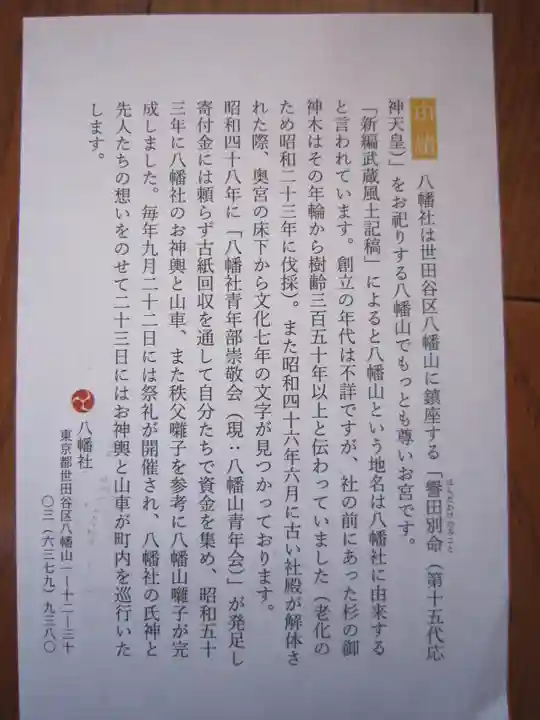 由緒
八幡社は世田谷区八幡山に鎮座する「誉田別命（第十五代応
ほんだわけのみこと
神天皇）」をお祀りする八幡山でもっとも尊いお宮です。
「新編武蔵風土記稿」によると八幡山という地名は八幡社に由来する
と言われています。創立の年代は不詳ですが、社の前にあった杉の御
神木はその年輪から樹齢三百五十年以上と伝わっていました（老化の
ため昭和二十三年に伐採）。また昭和四十六年六月に古い社殿が解体さ
れた際、奥宮の床下から文化七年の文字が見つかっております。
昭和四十八年に「八幡社青年部崇敬会（現：八幡山青年会）」が発足し
寄付金には頼らず古紙回収を通して自分たちで資金を集め、昭和五十
三年に八幡社のお神輿と山車、また秩父囃子を参考に八幡山囃子が完
成しました。毎年九月二十二日には祭礼が開催され、八幡社の氏神と
先人たちの想いをのせて二十三日にはお神輿と山車が町内を巡行いた
します。
八幡社
東京都世田谷区八幡山一ー十二ー三十
〇三（六三七九）九三八〇